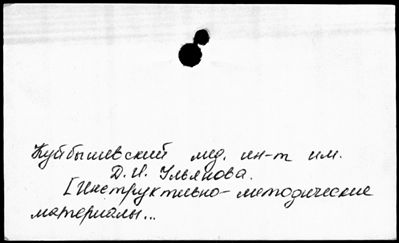 Куйбышевский мед. ин-т им.
Д. И. Ульянова.
[Инструктивно-методические
материалы...